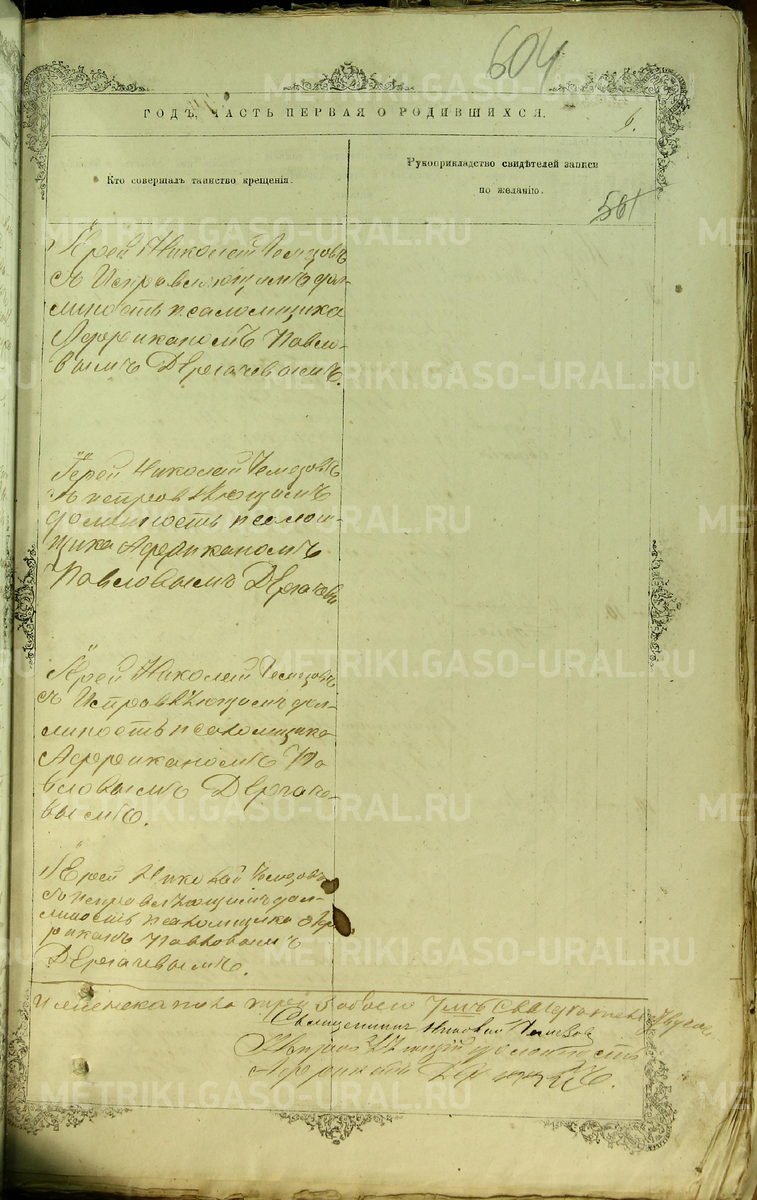 604
ГОДЪ, ЧАСТЬ ПЕРВАЯ О РОДИВШИХСЯ.
6.
Кто совершалъ таинство крещенія.
Рукоприкладство свидѣтелей записи
по желанію.
501
Іерей Николай Чемезовъ
съ Исправляющимъ дол-
жность псаломщика
Африканомъ Павло-
вымъ Дергачевымъ.
Іерей Николай Чемезовъ
съ исправляющимъ
должность псалом-
щика Африканомъ
Павловымъ Дергачевы
Іерей Николай Чемезовъ
съ Исправляющимъ дол-
жность псаломщика
Африканомъ Па
вловымъ Дергаче-
вымъ.
Іерей Николай Чемезовъ
съ исправляющимъ дол-
жность псаломщика Аф
риканъ Павловымъ
Дергачевымъ.
обоего
Священникъ Николай Чемезовъ
должность
Африканъ
METRIKI.GASO-URAL.RU